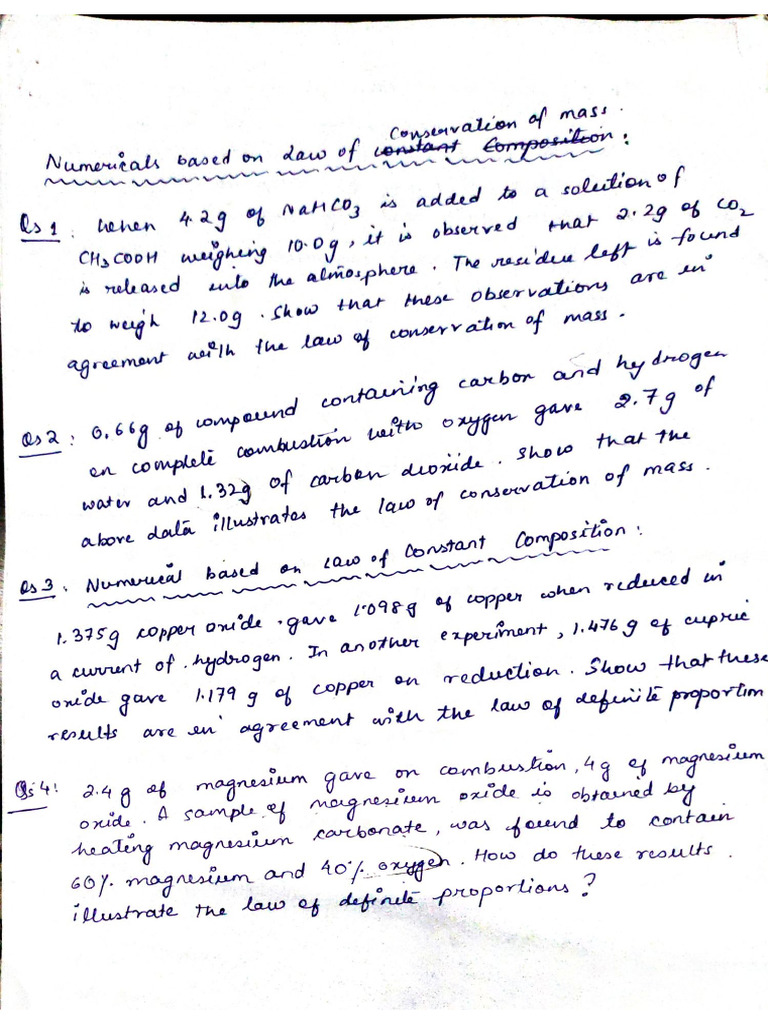 Conservation of mass.
Numericals based on Law of constant Composition:
Qs 1: When 4.2g of NaHCO3 is added to a solution of
CH3COOH weighing 10.0g, it is observed that 2.2g of CO2
is released into the atmosphere. The residue left is found
to weigh 12.0g. Show that these observations are in
agreement with the law of conservation of mass.
Qs 2: 0.66g of compound containing carbon and hydrogen
on complete combustion with oxygen gave 2.7g of
water and 1.32g of carbon dioxide. Show that the
above data illustrates the law of conservation of mass.
Qs 3. Numerical based on Law of Constant Composition:
1.375g copper oxide gave 1.098g of copper when reduced in
a current of hydrogen. In another experiment, 1.476g of cupric
oxide gave 1.179 g of copper on reduction. Show that these
results are in agreement with the law of definite proportion
Qs 4: 2.4g of magnesium gave on combustion, 4g of magnesium
oxide. A sample of magnesium oxide is obtained by
heating magnesium carbonate, was found to contain
60% magnesium and 40% oxygen. How do these results
illustrate the law of definite proportions?